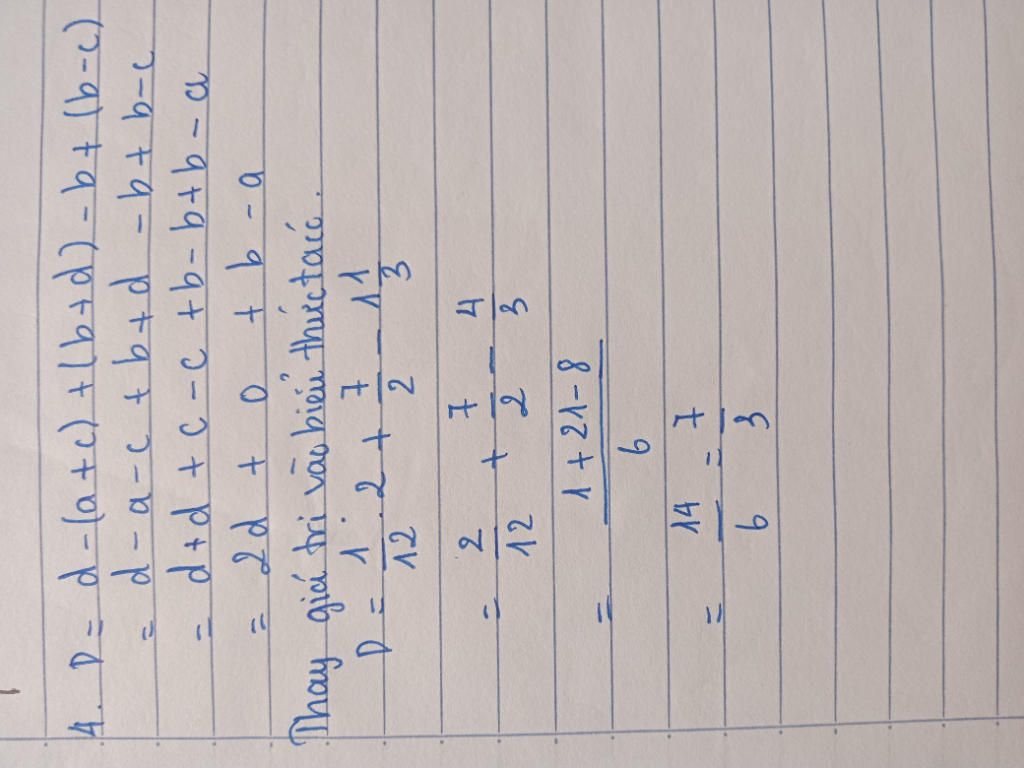 4. D = d - (a + c) + (b + d) - b + (b - c)
= d - a - c + b + d - b + b - c
= d + d + c - c + b - b + b - a
= 2d + 0 + b - a
Thay giá trị vào biểu thức tacó.
D = 1/12 . 2 + 7/2 - 1 1/3
= 2/12 + 7/2 - 4/3
= (1 + 21 - 8)/6
= 14/6 = 7/3